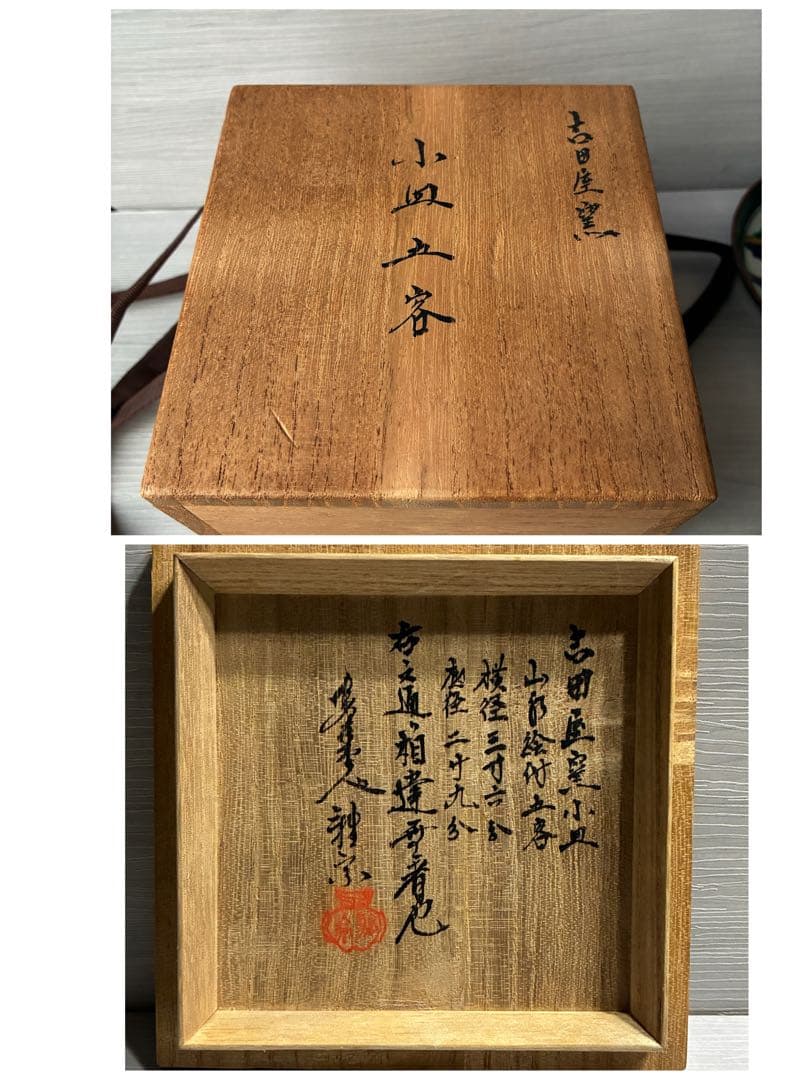 吉田屋窯
小皿五客
吉田屋窯小皿
山水絵付五客
横径三寸六分
底径二寸九分
右之通相違無者也